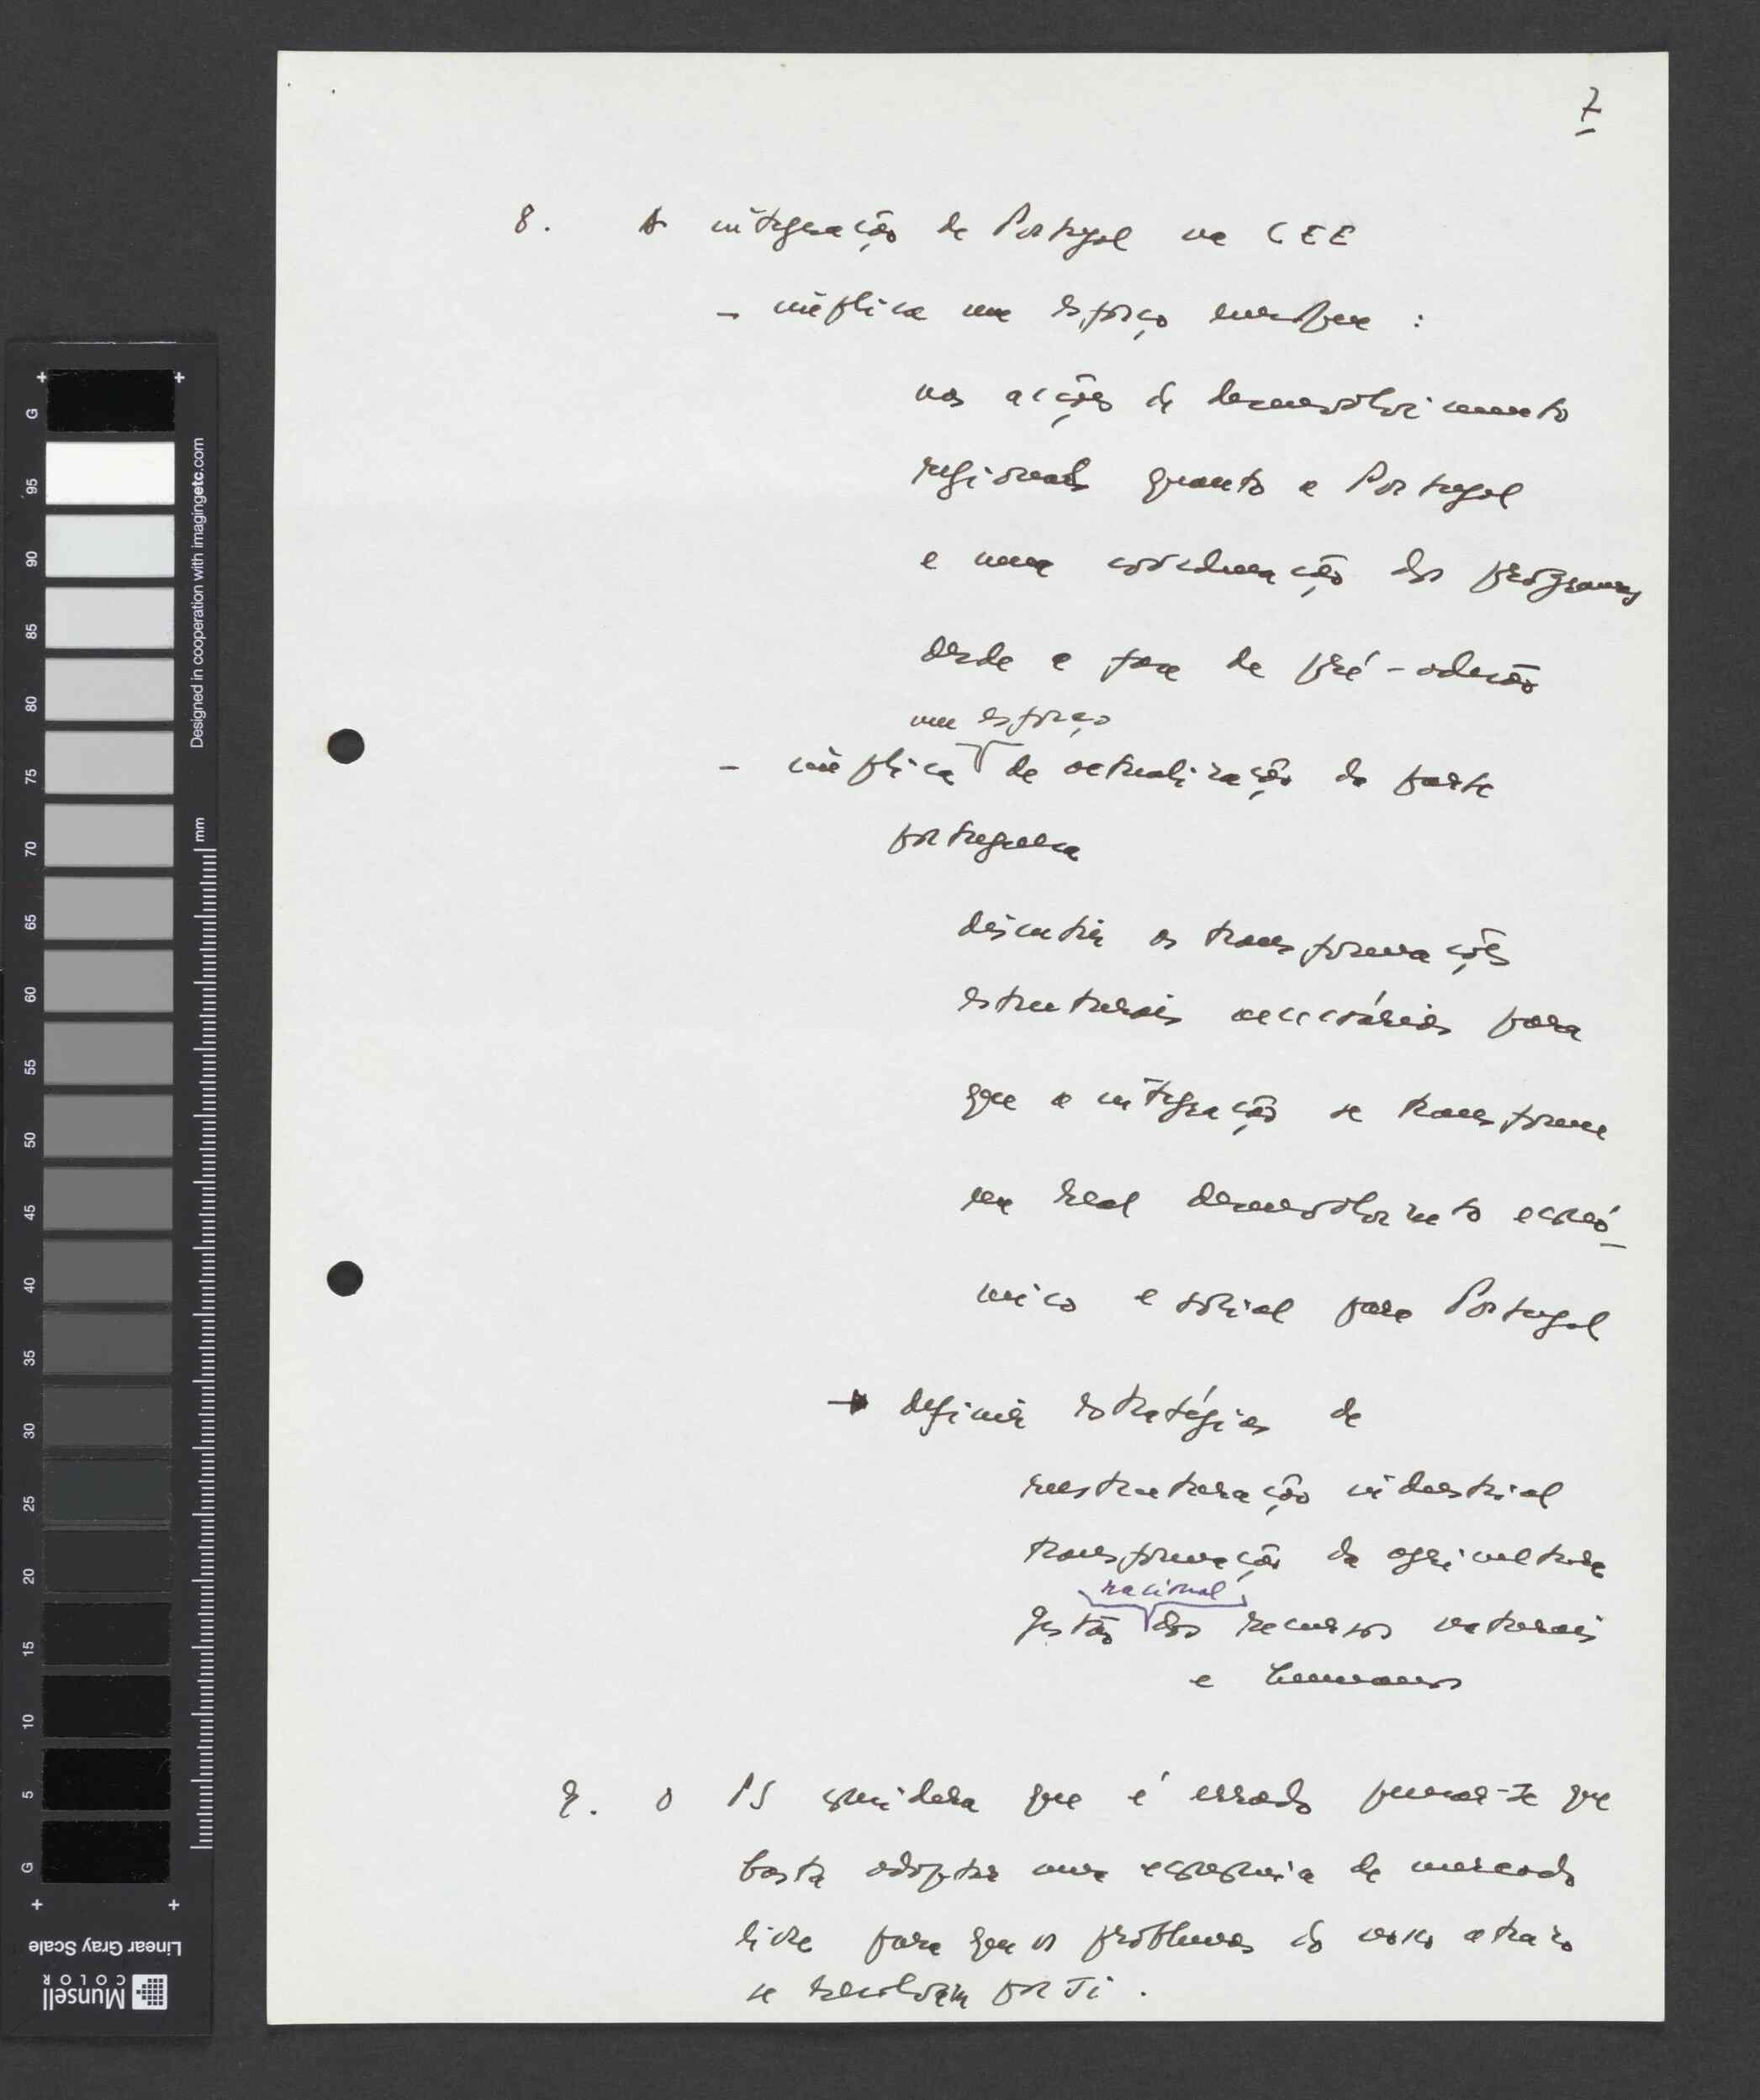 7
8. A integração de Portugal na CEE
- implica um esforço europeu :
nas acções de desenvolvimento
regionais quanto a Portugal
e uma coordenação dos programas
desde a fase de pré-adesão
um esforço
- implica de actualização da parte
portuguesa
discutir as transformações
estruturais necessárias para
que a integração se transforme
em real desenvolvimento econó-
mico e social para Portugal
→ definir estratégias de
reestruturação industrial
transformação da agricultura
racional
gestão dos recursos naturais
e humanos
9. O PS considera que é errado pensar-se que
basta adoptar uma economia de mercado
livre para que os problemas do nosso atraso
se resolvam por si .
+ +
G 95 90 85 80 75 70 65 60 55 50 45 40 35 30 25 20 15 10 5 G
Designed in cooperation with imagingetc.com
mm
+ +
Linear Gray Scale
Munsell
COLOR